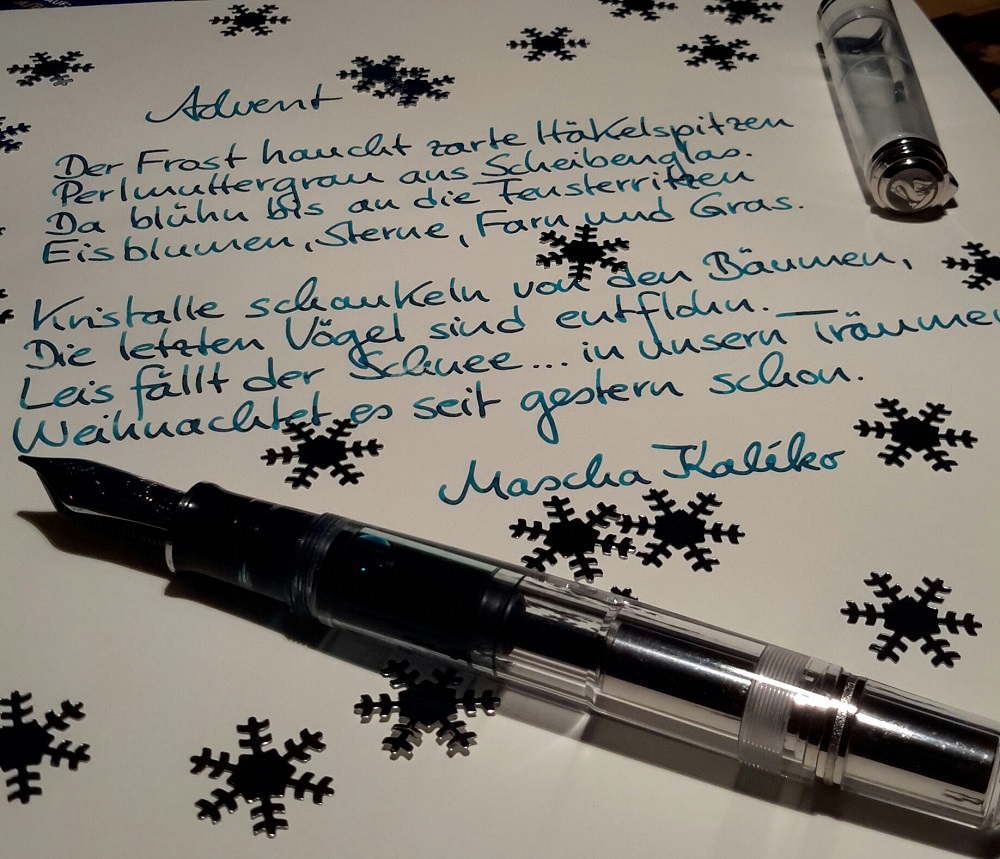 Advent
Der Frost haucht zarte Häkelspitzen
Perlmuttergrau aus Scheibenglas.
Da blühn bis an die Fensterritzen
Eisblumen, Sterne, Farn und Gras.
Kristalle schaukeln von den Bäumen,
Die letzten Vögel sind entflohn.
Leis fällt der Schnee... in unsern Träumen
Weihnachtet es seit gestern schon.
Mascha Kaléko